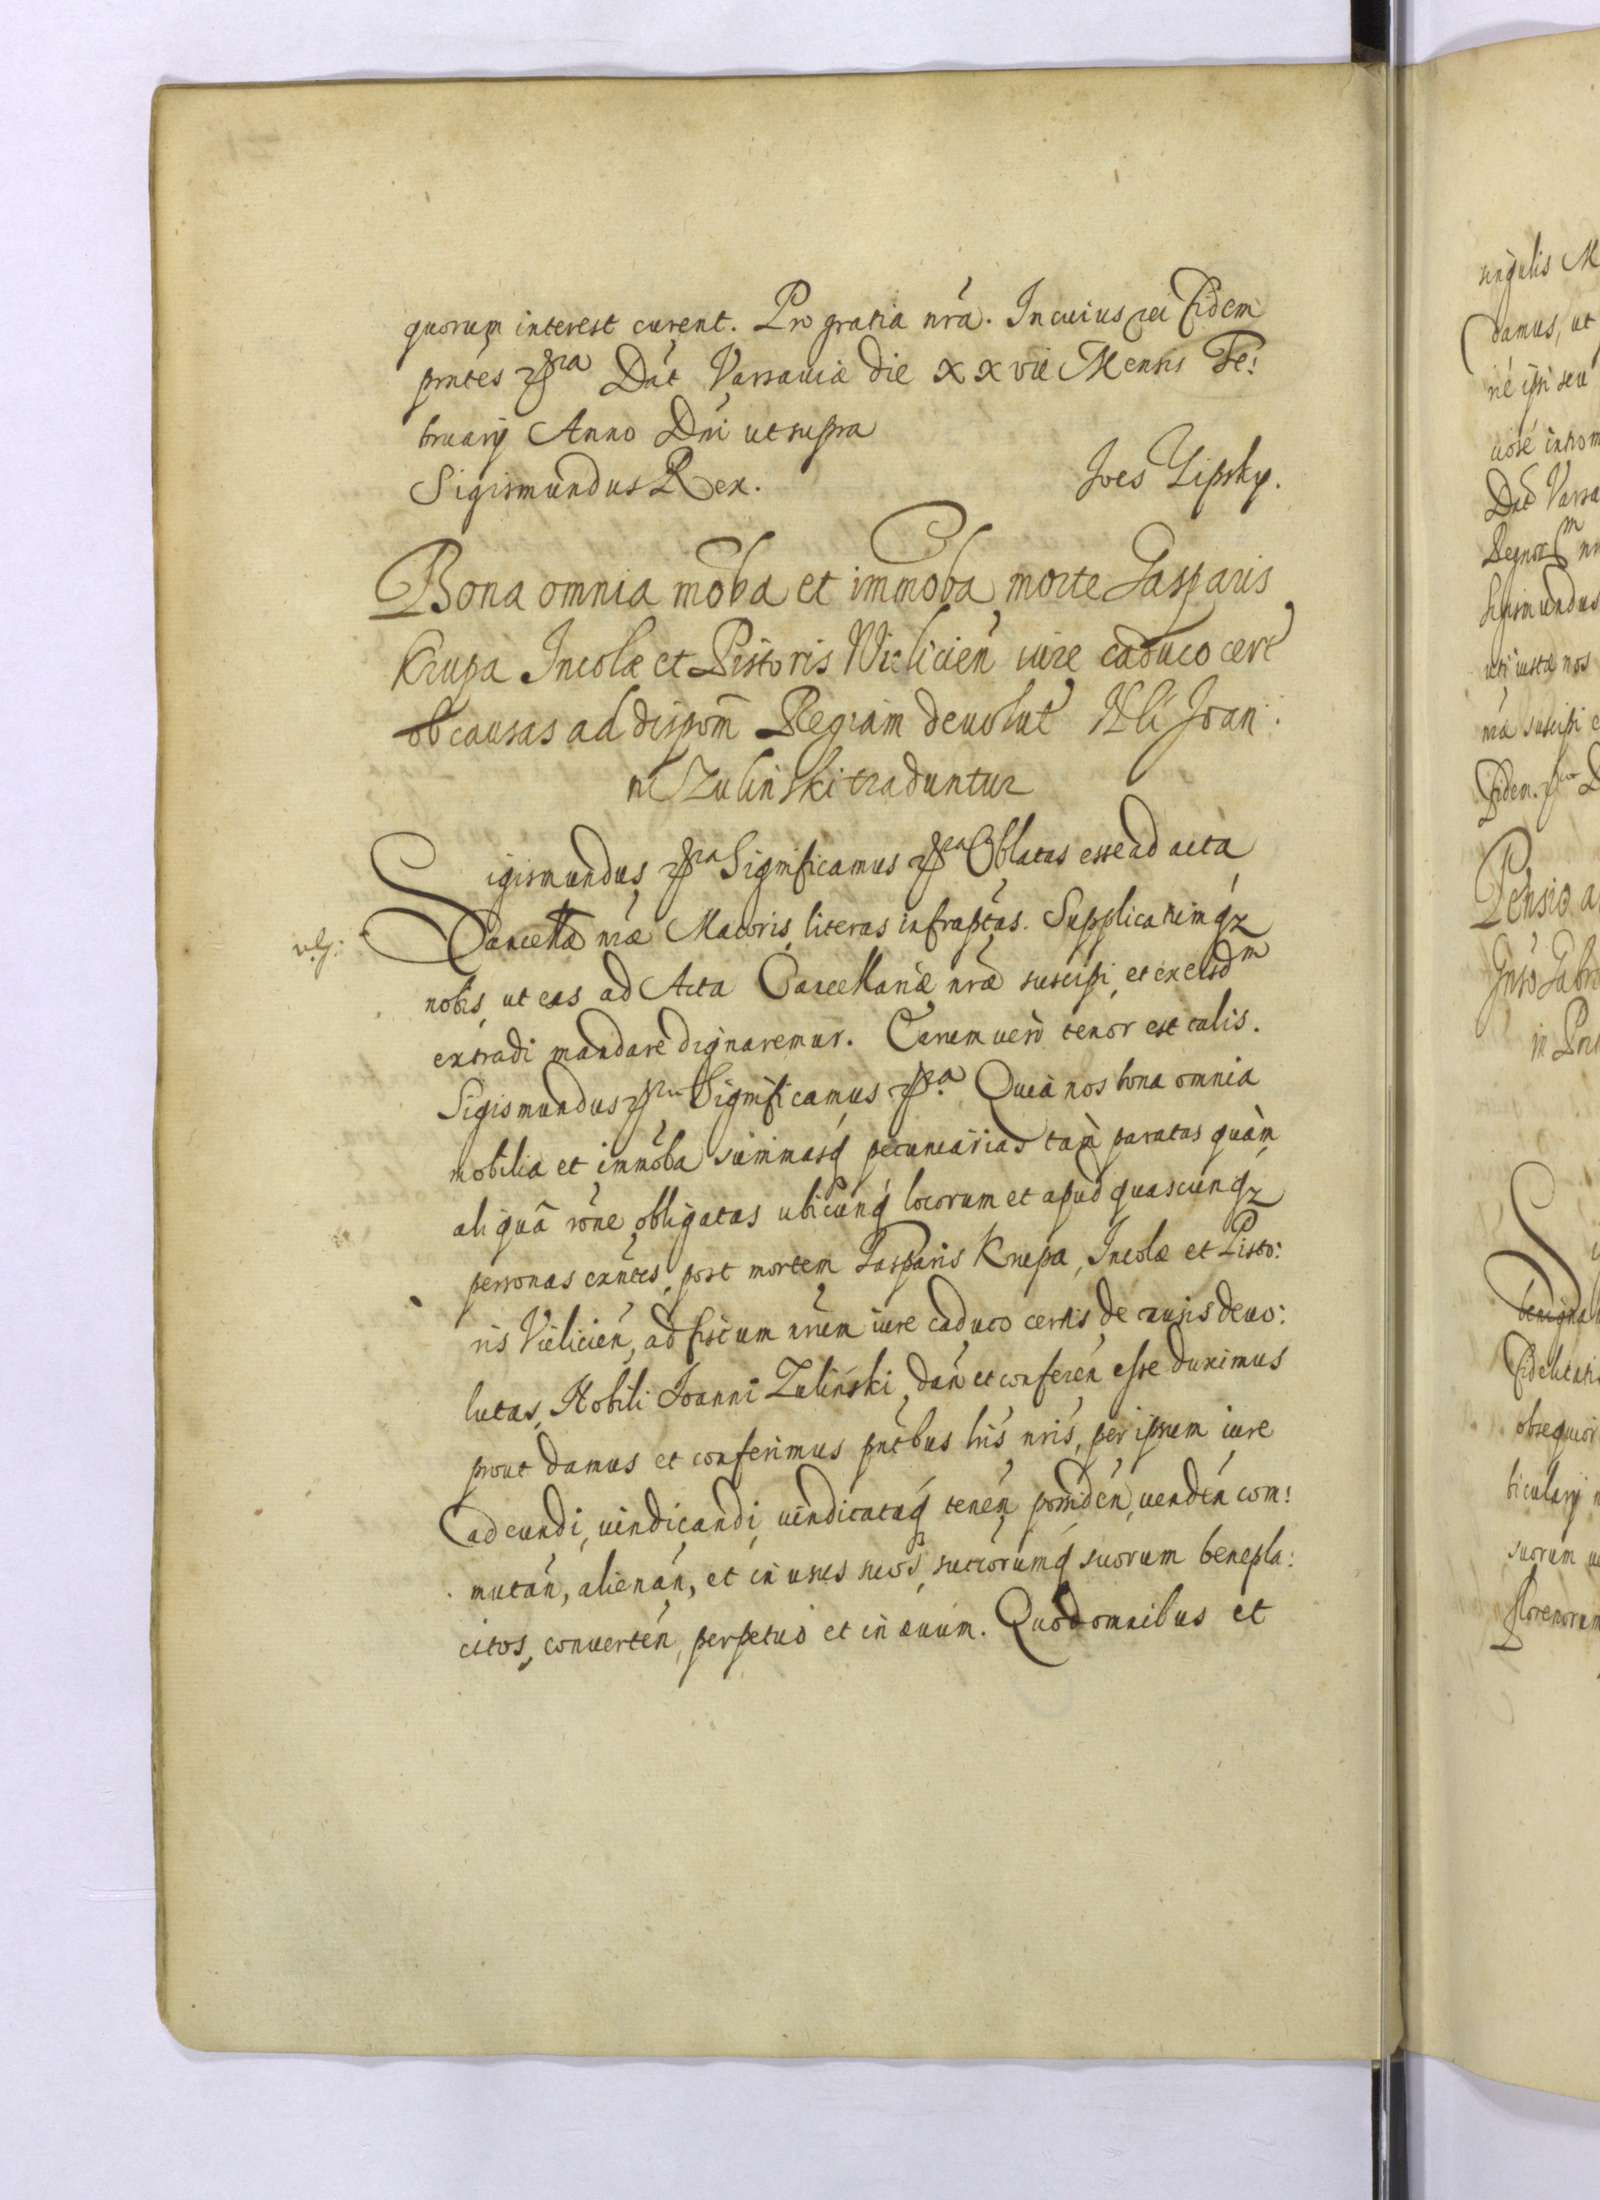 quorum interest curent. Pro gratia nrã. In cuius rei fidem
pntes &ra Dat Varsaviæ die XXVII Mensis Fe:
bruarÿ Anno Dni ut supra
Sigismundus Rex. Joes Lipsky.
Bona omnia moba et immoba morte Gasparis
Krupa Incolæ et Pistoris Wielicien iure caduco cert
ob causas ad dispom Regiam devolut Nli Joan:
ni Zulinski traduntur
Sigismundus &ra Significamus &ra Oblatas esse ad acta
v.g: Cancellæ nræ Maioris literas infraptas. Supplicatumqz
nobis, ut eas ad Acta Cancellariæ nræ suscipi, et ex eisdm
extradi mandare dignaremur. Earum vero tenor est talis.
Sigismundus &ra Significamus &ra. Quia nos bona omnia
mobilia et immoba summasq pecuniarias tam paratas quàm
aliquâ rõne obligatas ubicunq locorum et apud quascunqz
personas exntes, post mortem Gasparis Krupa, Incolæ et Pisto:
ris Vielicien, ad fiscum nrum iure caduco certis de causis devo:
lutas, Nobili Joanni Zulinski, dan et conferen esse duximus
prout damus et conferimus pntbus lris nris, per ipsum iure
adeundi, vindicandi, vindicataq tenen possiden, venden com:
mutan, alienan, et in usus suos, succorumq suorum benepla:
citos, converten, perpetuo et in ævum. Quod omnibus et
singulis M
damus, ut
ne ipsi seu
Dat Varsa
Sigismundus
uti iusta nos
nra suscipi e
fidem. &ra D
Pensio a
in
benigna
fidelitatis
obsequior
ticularÿ n
suorum
florenorum